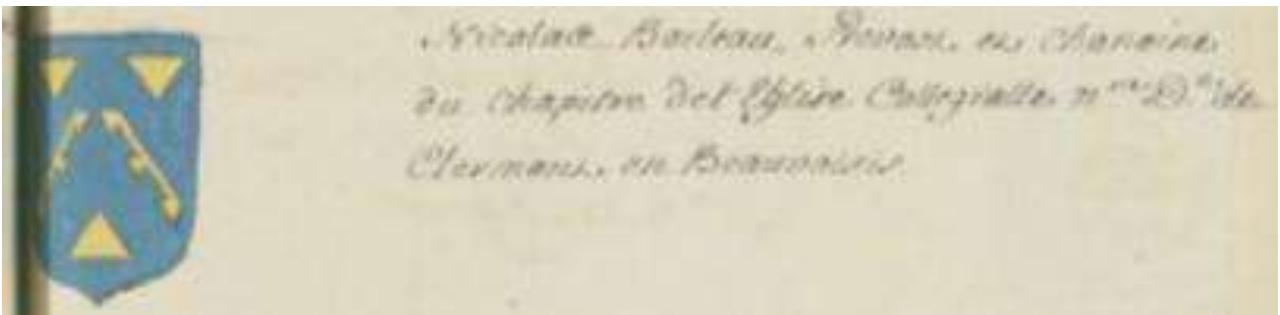 Nicolas Boileau, Prevost, et Chanoine
du Chapitre del'Eglise Collegialle n.re D.e de
Clermont, en Beauvoisis